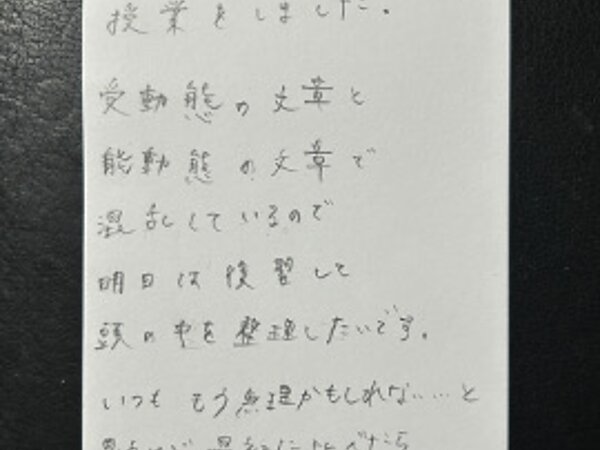 授業をしました。
受動態の文章と
能動態の文章で
混乱しているので
明日は復習して
頭の中を整理したいです。
いつも もう無理かもしれない…と